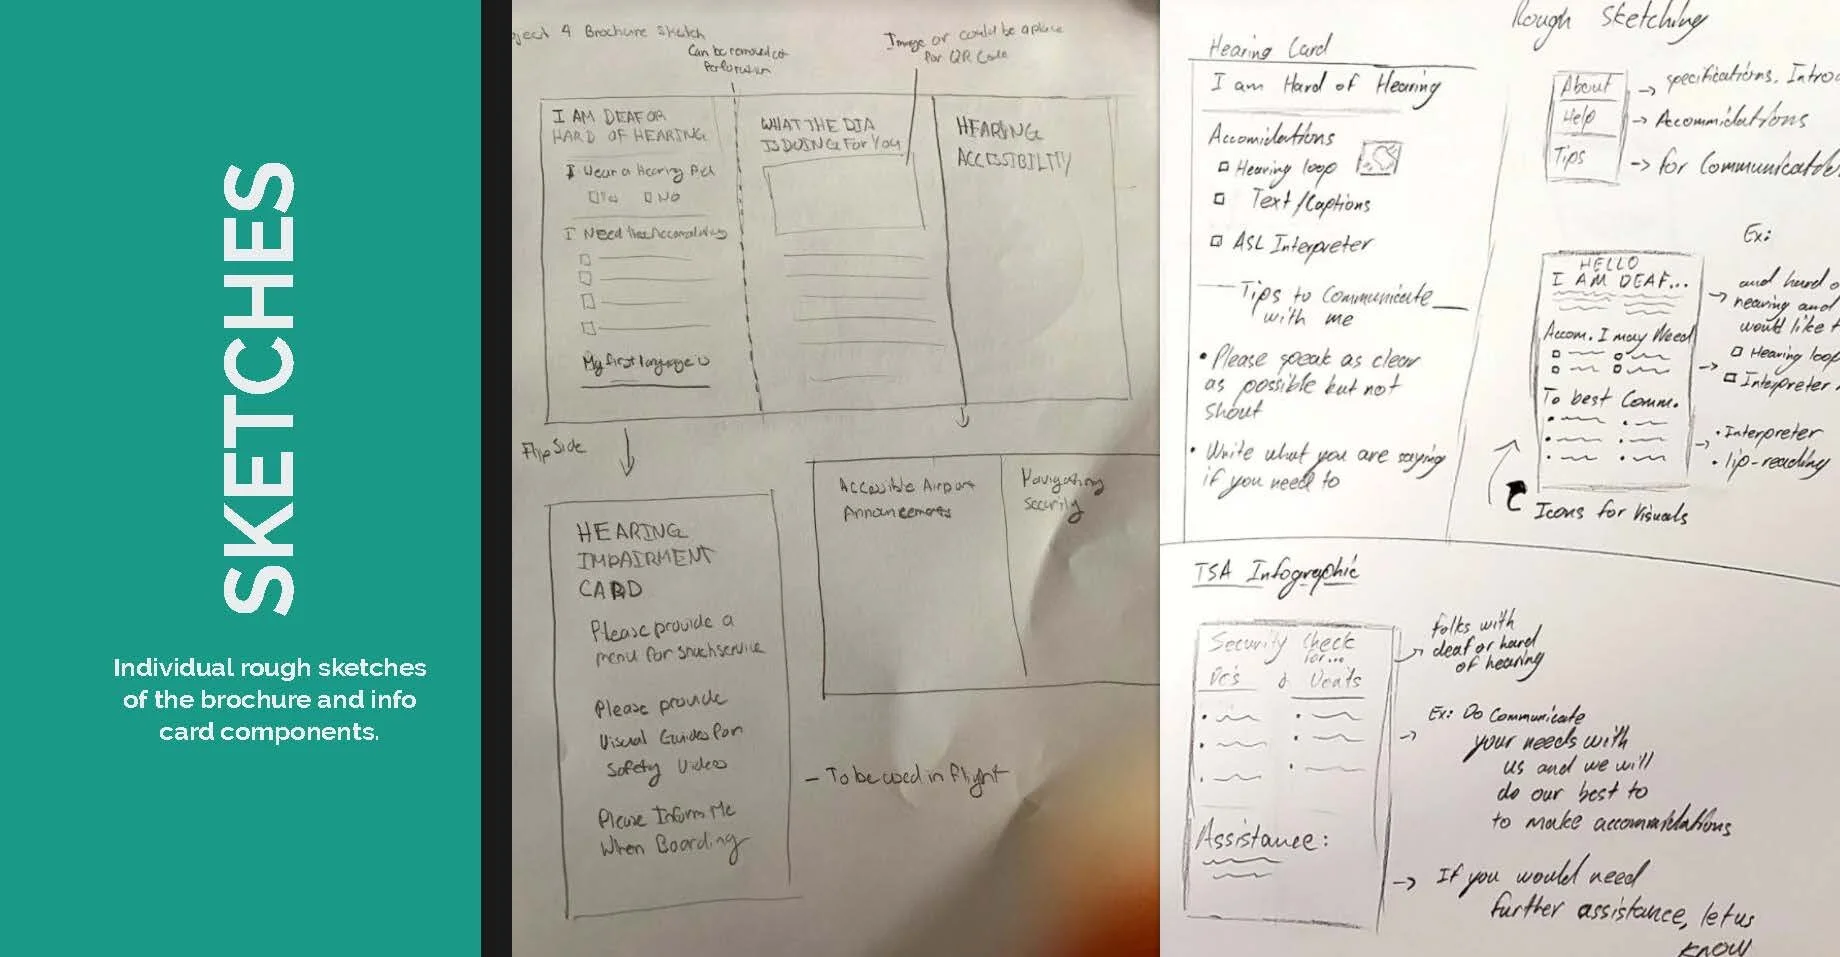 SKETCHES
Individual rough sketches
of the brochure and info
card components.
ject 4 Brochure Sketch
Can be removed at
Perforation
Image or could be a place
for QR Code
I AM DEAF OR
HARD OF HEARING
I Wear a Hearing Aid
Yes
No
I Need
My first language is
WHAT THE DIA
IS DOING FOR YOU
HEARING
ACCESSIBILITY
Flip Side
HEARING
IMPAIRMENT
CARD
Please provide a
menu for snack service
Please provide
Visual Guides for
Safety Videos
Please Inform Me
When Boarding
Accessible Airport
Announcements
Navigating
Security
- To be used in flight
Rough Sketching
Hearing Card
I am Hard of Hearing
Accomidations
Hearing loop
Text/Captions
ASL Interpreter
Tips to Communicate
with me
• Please speak as clear
as possible but not
shout
• Write what you are saying
if you need to
About
→ specifications. Intro
Help
→ Accommidations
Tips
→ for Communicat
Ex:
HELLO
I AM DEAF...
→ and hard o
hearing and
would like t
Accom. I may Need
Hearing loop
Interpreter
To best Comm.
• Interpreter
• lip-reading
Icons for Visuals
TSA Infographic
Security Check
for...
Do's & Donts
folks with
deaf or hard
of hearing
Ex: Do Communicate
your needs with
us and we will
do our best to
to make accommidations
Assistance:
→ If you would need
further assistance, let us
know